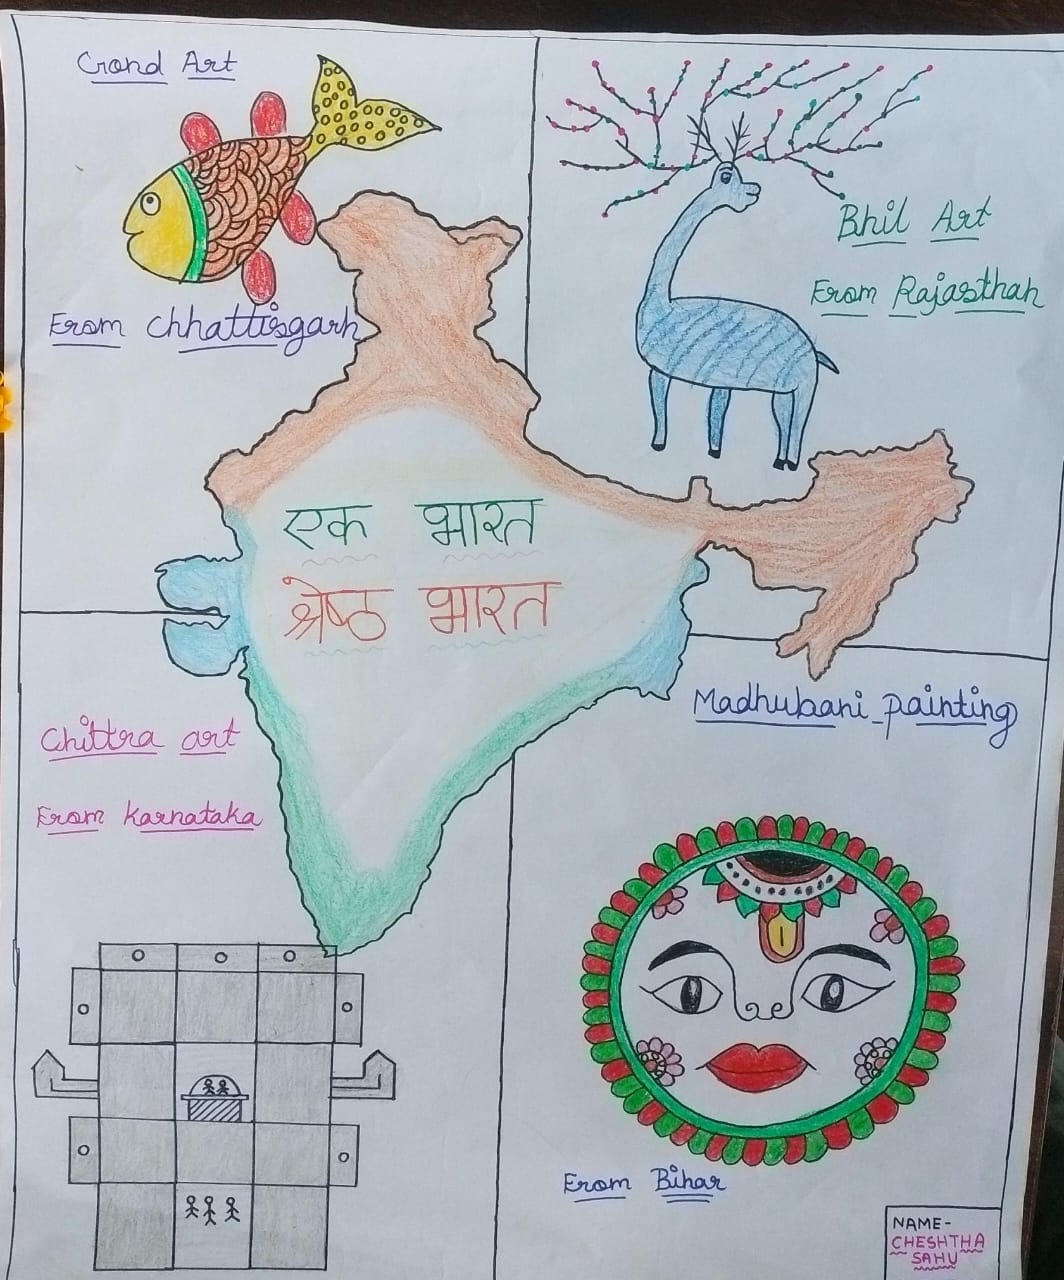 Gond Art
From Chhattisgarh
Bhil Art
From Rajasthan
एक भारत
श्रेष्ठ भारत
Chittra art
From Karnataka
Madhubani painting
From Bihar
NAME-
CHESHTHA
SAHU